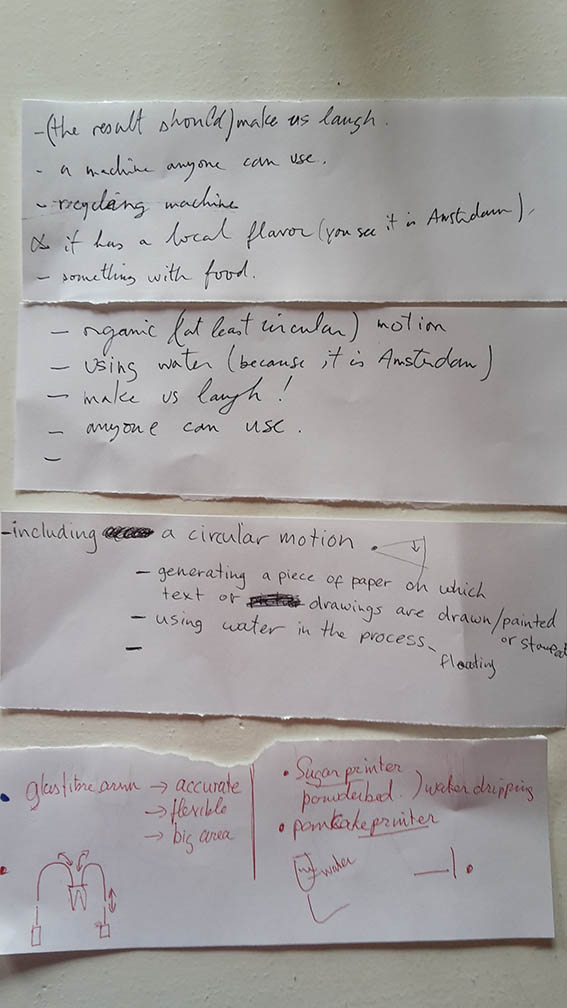 - (the result should) make us laugh.
- a machine anyone can use.
- recycling machine
it has a local flavor (you see it is Amsterdam).
- something with food.
- organic (at least circular) motion
- using water (because it is Amsterdam)
- make us laugh!
- anyone can use.
-
- including a circular motion
- generating a piece of paper on which
text or drawings are drawn/painted
or stamped
- using water in the process
floating
-
• glasfibre arm → accurate
→ flexible
→ big area
• Sugar printer
powderbed. ) water dripping
• pankake printer
water